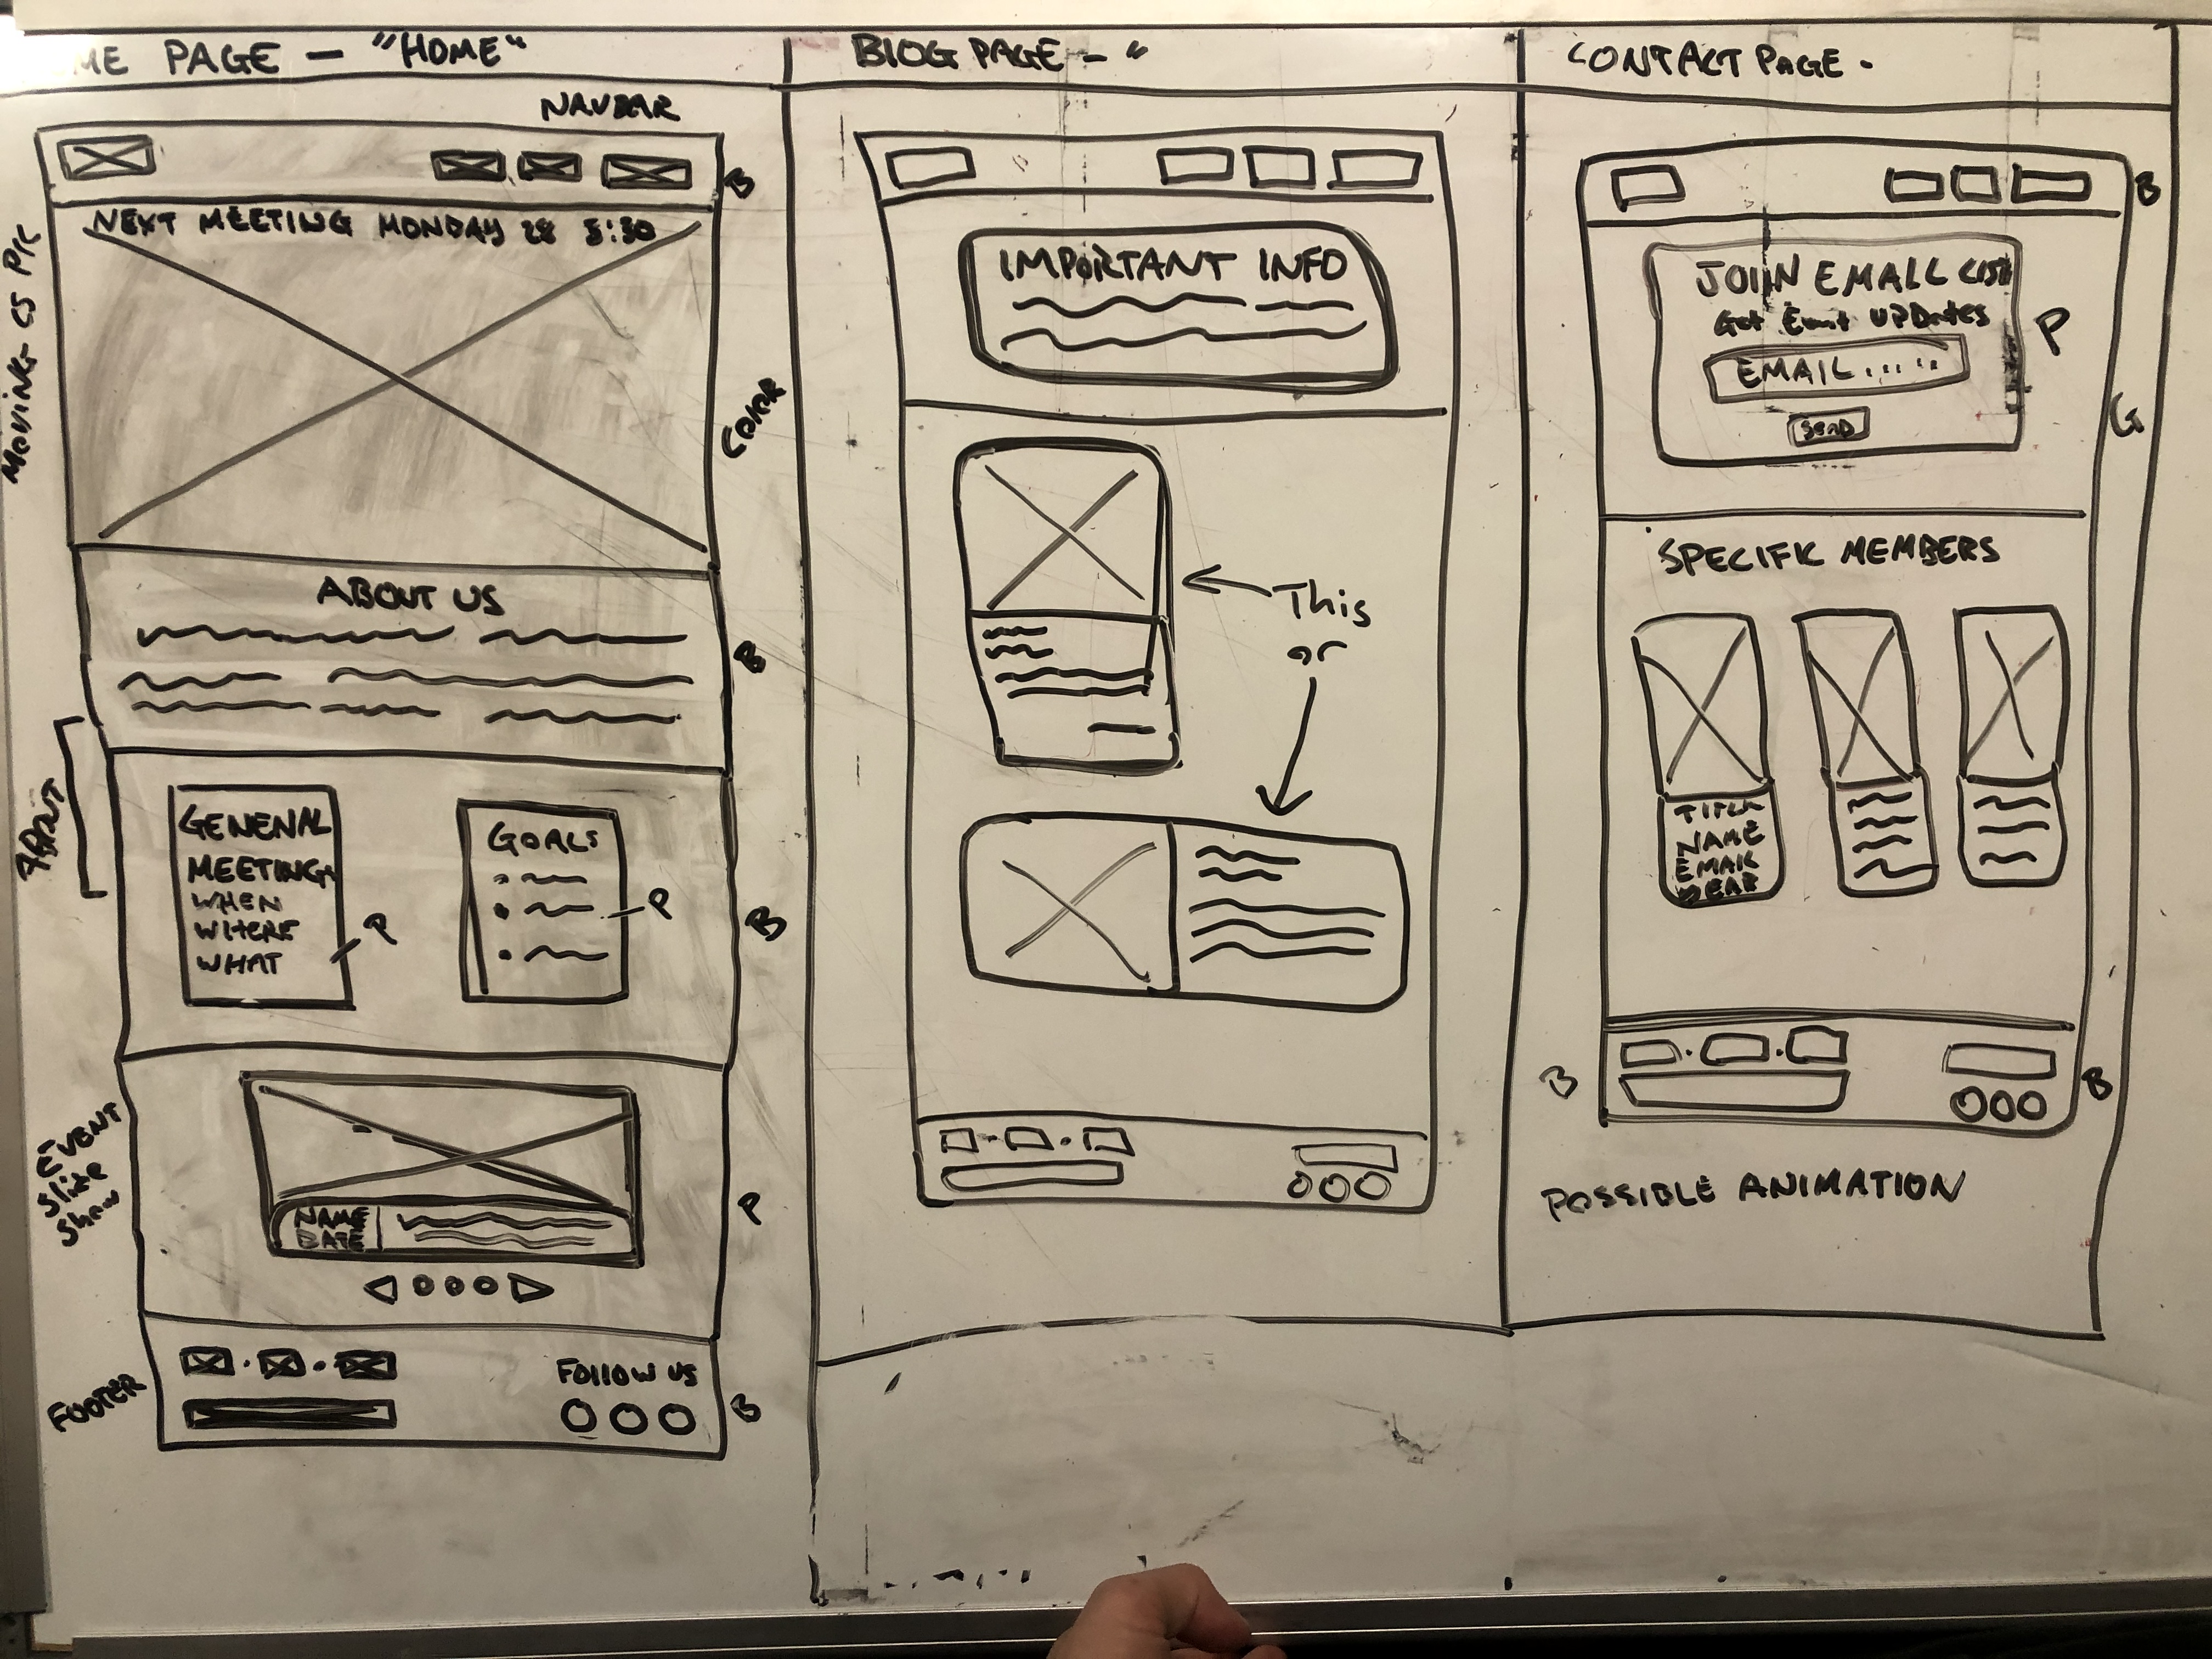 ME PAGE - "HOME"
NAVBAR
B
NEXT MEETING MONDAY 28 5:30
MOVING CS PIC
COLOR
ABOUT US
B
GENENAL
MEETINGS
WHEN
WHERE
WHAT
P
GOALS
P
B
EVENT
Slide
Show
NAME
DATE
P
FOOTER
FOllOW US
B
BlOG PAGE - "
IMPORTANT INFO
This
or
CONTACT PAGE -
B
JOIN EMAIL LIST
Get Email UPDates
EMAIL......
Send
P
G
SPECIFIC MEMBERS
TITLE
NAME
EMAIL
YEAR
B
B
POSSIBLE ANIMATION